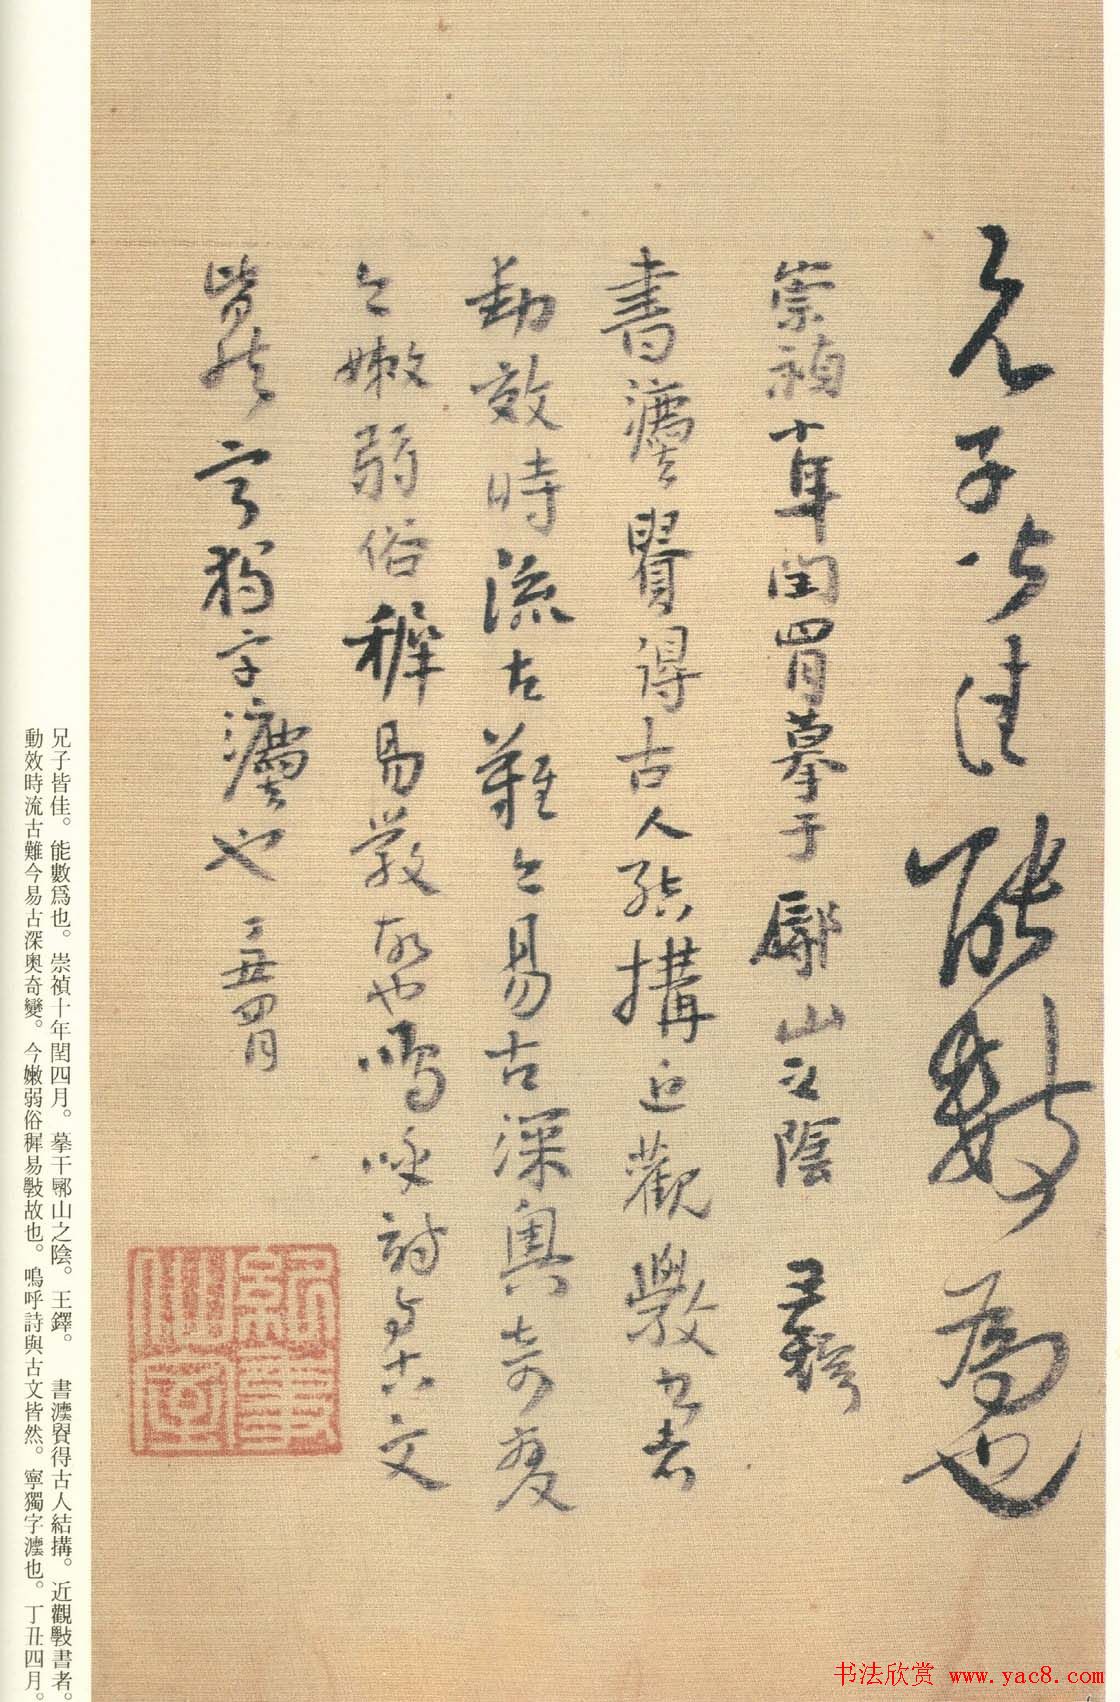 兄子皆佳能數爲也
崇禎十年閏四月摹于鄏山之陰 王鐸
書灋貴得古人結搆近觀學書者
動效時流古難今易古深奧奇變
今嫩弱俗穉易學故也嗚呼詩與古文
皆然寧獨字灋也丁丑四月
兄子皆佳。能數爲也。崇禎十年閏四月。摹于鄏山之陰。王鐸。 書灋貴得古人結搆。近觀斅書者。
動效時流古難今易古深奧奇變。今嫩弱俗穉易斅故也。嗚呼詩與古文皆然。寧獨字灋也。丁丑四月。
书法欣赏 www.yac8.com